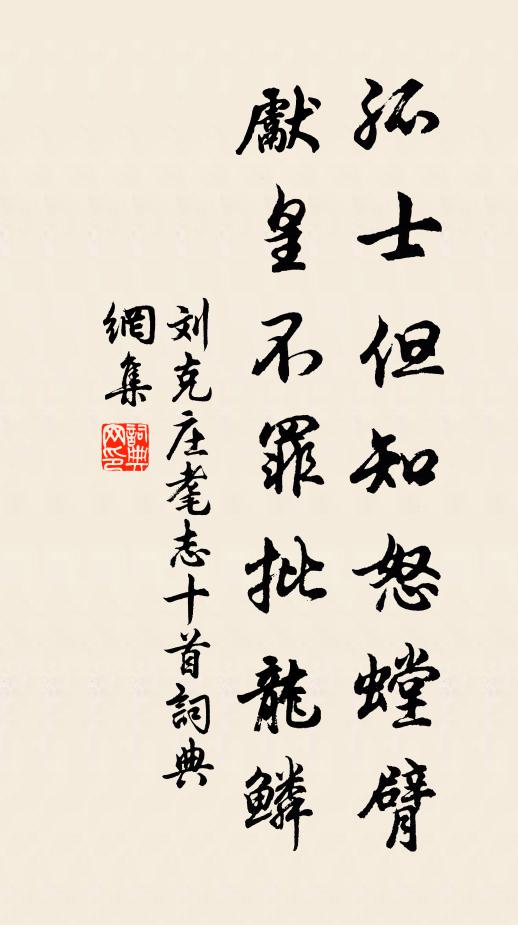 孤士但知怒螳臂
獻皇不罪批龍鱗
刘克庄耄志十首詞典
網集
詞典
网印